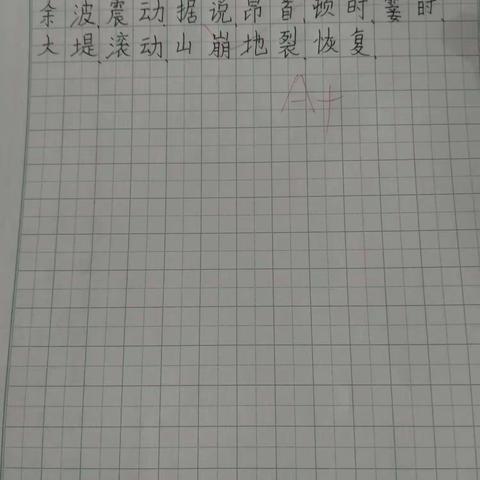 余波、震动、据说、昂首、顿时、霎时、
大堤、滚动、山崩地裂、恢复、
A+